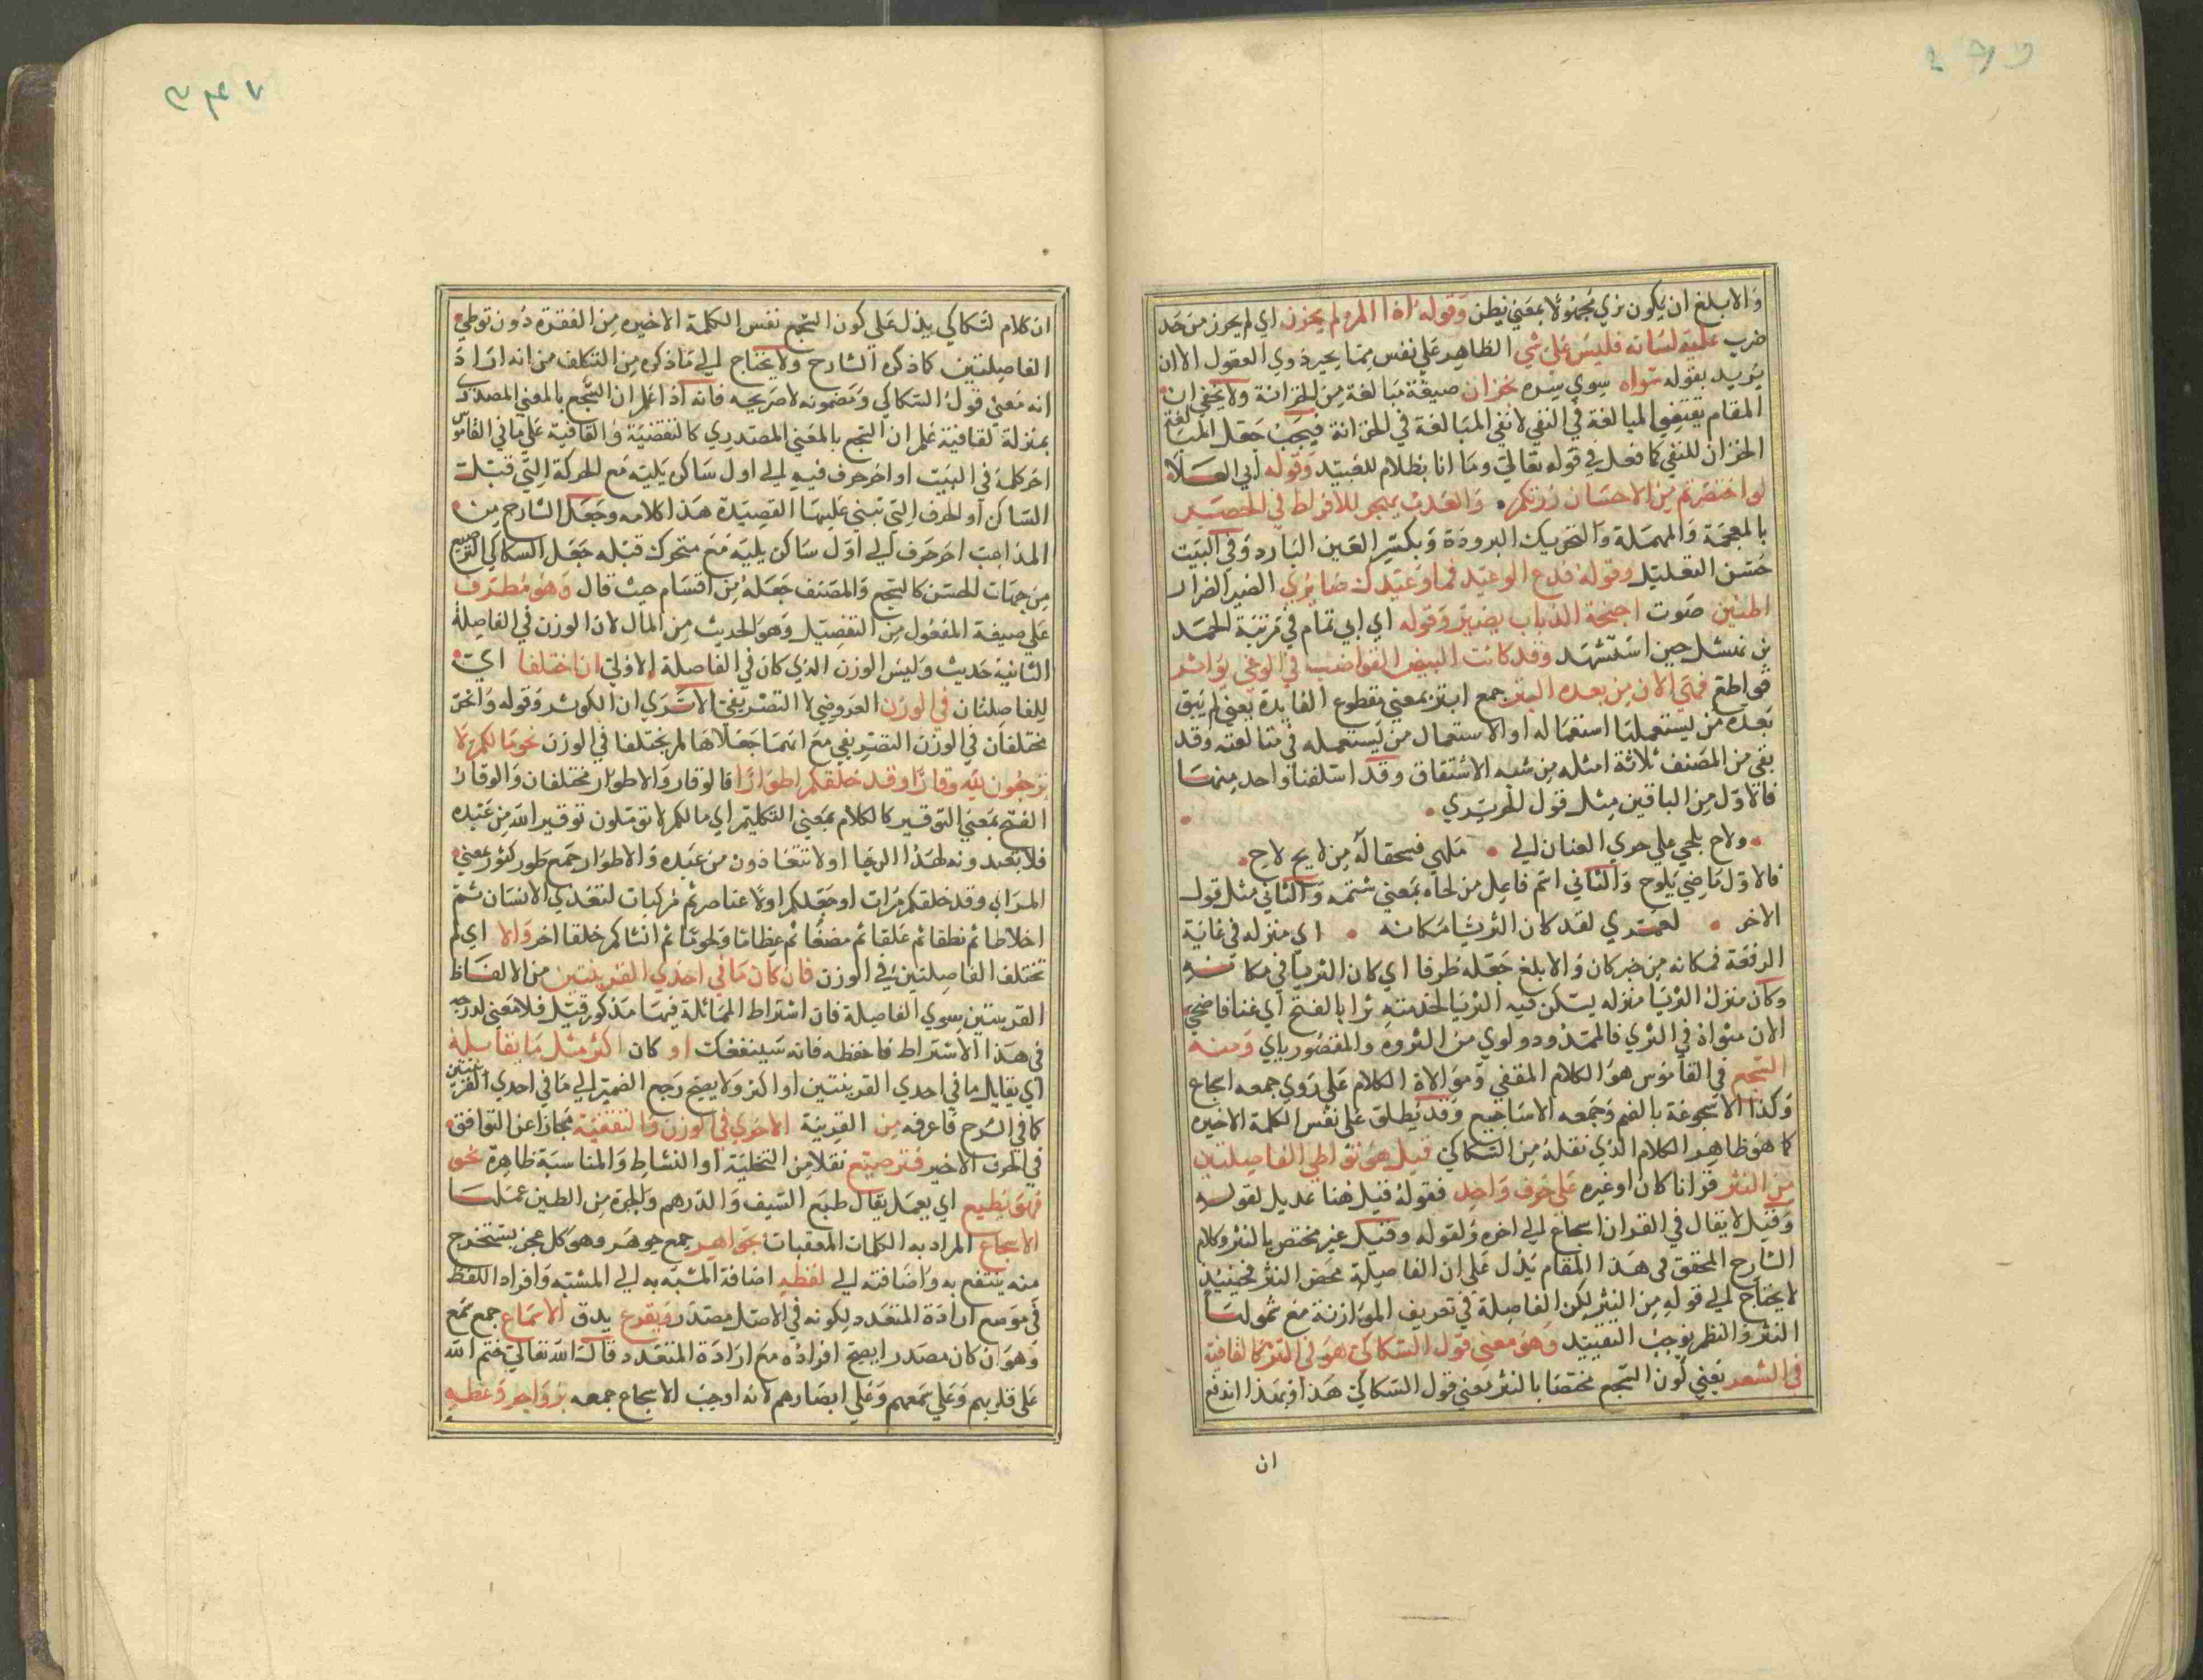 والابلغ ان يكون نري مجهولا بمعني نظن وقوله اذا المرء لم يخزن اي لم يحرز من حد
ضرب عليه لسانه فليس علي شي الظاهر علي نفس مما يحير ذوي العقول الا ان
يريد بقوله سواه سوي سره بخزان صيغة مبالغة من الخزانة ولا يخفي ان
المقام يقتضي المبالغة في النفي لا نفي المبالغة في الخزانة فيجب جعل المبالغة
الخزان للنفي كما فعل في قوله تعالي وما انا بظلام للعبيد وقوله ابي العلا
لو اختصرتم من الاحسان زرتكم والعذب يهجر للافراط في الخصر
بالمعجمة والمهملة والتحريك البرودة وبكسر العين البارد وفي البيت
حسن التعليل وقوله فدع الوعيد فما وعيدك ضايري الضير الضرار
اطنين صوت اجنحة الذباب يضير وقوله اي ابي تمام في مرثية الحمد
بن نهشل حين استشهد وقد كانت البيض القواضب في الوغي بواتر
قواطع فهي الان من بعده البتر جمع ابتر بمعني مقطوع الفايدة يعني لم يبق
بعده من يستعملها استعماله او الاستعمال من يستعمله في متالفته وقد
بقي من المصنف ثلاثة امثله من شبه الاشتقاق وقد اسلفنا واحد منها
فالاول من الباقين مثل قول الحريري
ولاح يلحي علي جري العنان الي ملهي فسحقا له من لايح لاح
فالاول ماضي يلوح والثاني اسم فاعل من لحاه بمعني شتمه والثاني مثل قول
الاخر لعمري لقد كان الثريا مكانه اي منزله في غاية
الرفعة فمكانه من خبر كان والابلغ جعله ظرفا اي كان الثريا في مكانه
وكان منزل الثريا منزله يسكن فيه الثريا لخدمته ثرا بالفتح اي غنا فاضحي
الان مثواه في الثري فالممدود ولوي من الثروة والمقصور ياي ومنه
السجع في القاموس هو الكلام المقفي وموالاة الكلام علي روي جمعه اسجاع
وكذا الاسجوعة بالضم وجمعه الاساجيع وقد يطلق علي نفس الكلمة الاخيره
كما هو ظاهر الكلام الذي نقله من السكاكي قيل هو تواطي الفاصلتين
من النثر قرانا كان او غيره علي حرف واحد فقوله قيل هنا عديل لقوله
وقيل لا يقال في القران اسجاع الي اخره ولقوله وقيل غير مختص بالنثر وكلام
الشارح المحقق في هذا المقام يدل علي ان الفاصلة محض النثر فحينئذ
لا يحتاج الي قوله من النثر لكن الفاصلة في تعريف الموازنة مع شمولها
النثر والنظم يوجب التقييد وهو معني قول السكاكي هو في النثر كالقافية
في الشعر يعني كون السجع مختصا بالنثر معني قول السكاكي هذا وبهذا اندفع
ان
ان كلام السكاكي يدل علي كون السجع نفس الكلمة الاخيره من الفقرة دون توطي
الفاصلتين كما ذكره الشارح ولا يحتاج الي ماذكره من التكلف من انه اراد
انه معني قول السكاكي ومضمونه لا صريحه فانه اذا علم ان السجع بالمعني المصدري
بمنزلة القافية علم ان السجع بالمعني المصدري كالتقفية والقافية علي ما في القاموس
اخر كلمة في البيت او اخر حرف فيه الي اول ساكن يليه مع الحركة التي قبلت
الساكن او الحرف التي تبني عليها القصيدة هذا كلامه وجعل الشارح من
المذاهب اخر حرف الي اول ساكن يليه مع متحرك قبله جعل السكاكي الترصيع
من جهات الحسن كالسجع والمصنف جعله من اقسام حيث قال وهو مطرف
علي صيغة المفعول من التفضيل وهو الحديث من المال لان الوزن في الفاصلة
الثانية حديث وليس الوزن الذي كان في الفاصلة الاولي ان اختلفا اي
للفاصلتان في الوزن العروضي لا التصريفي الا تري ان الكوثر وقوله وانحر
مختلفان في الوزن التصريفي مع انهما جعلاها لم يختلفا في الوزن نحو مالكم لا
ترجون لله وقارا وقد خلقكم اطوارا فالوقار والاطوار مختلفان والوقار
الفتح بمعني التوقير كالكلام بمعني التكليم اي مالكم لا توملون توقير الله من عبده
فلا تعبدونه لهذا الرجا او لا تتخاذون من عبده والاطوار جمع طور كثور بمعني
المرة اي وقد خلقكم مرات او جعلكم اولا عناصر ثم مركبات لتغذي الانسان ثم
اخلاطا ثم نطفا ثم علقا ثم مضغا ثم عظاما ولحوما ثم انشاكم خلقا اخر والا اي لم
تختلف الفاصلتين في الوزن فان كان ما في احدي القرينتين من الالفاظ
القرينتين سوي الفاصلة فان اشتراط المماثلة فيهما مذكور قبيل فلا معني لدرجه
في هذا الاشتراط فاحفظه فانه سينفعك او كان اكثر مثل ما يقابله
اي يقابل ما في احدي القرينتين او اكثر ولا يصح رجع الضمير الي ما في احدي القرينتين
كما في الشرح فاعرفه من القرينة الاخري في الوزن والتقفية مجازا عن التوافق
في الحرف الاخير فترصيع نقلا من التحلية او النشاط والمناسبة ظاهرة نحو
فهو يطبع اي يعمل يقال طبع السيف والدرهم والجرة من الطين عملها
الاسجاع المراد به الكلمات المعقبات بجواهر جمع جوهر وهو كل حجر يستخرج
منه ينتفع به واضافته الي لفظه اضافة المشبه به الي المشبه وافراد اللفظ
في موضع ارادة المتعدد لكونه في الاصل مصدر ويقرع يدق الاسماع جمع سمع
وهو ان كان مصدرا يصح افراده مع ارادة المتعدد قال الله تعالي ختم الله
علي قلوبهم وعلي سمعهم وعلي ابصارهم لانه اوجب الاسجاع جمعه بزواجر وعظه